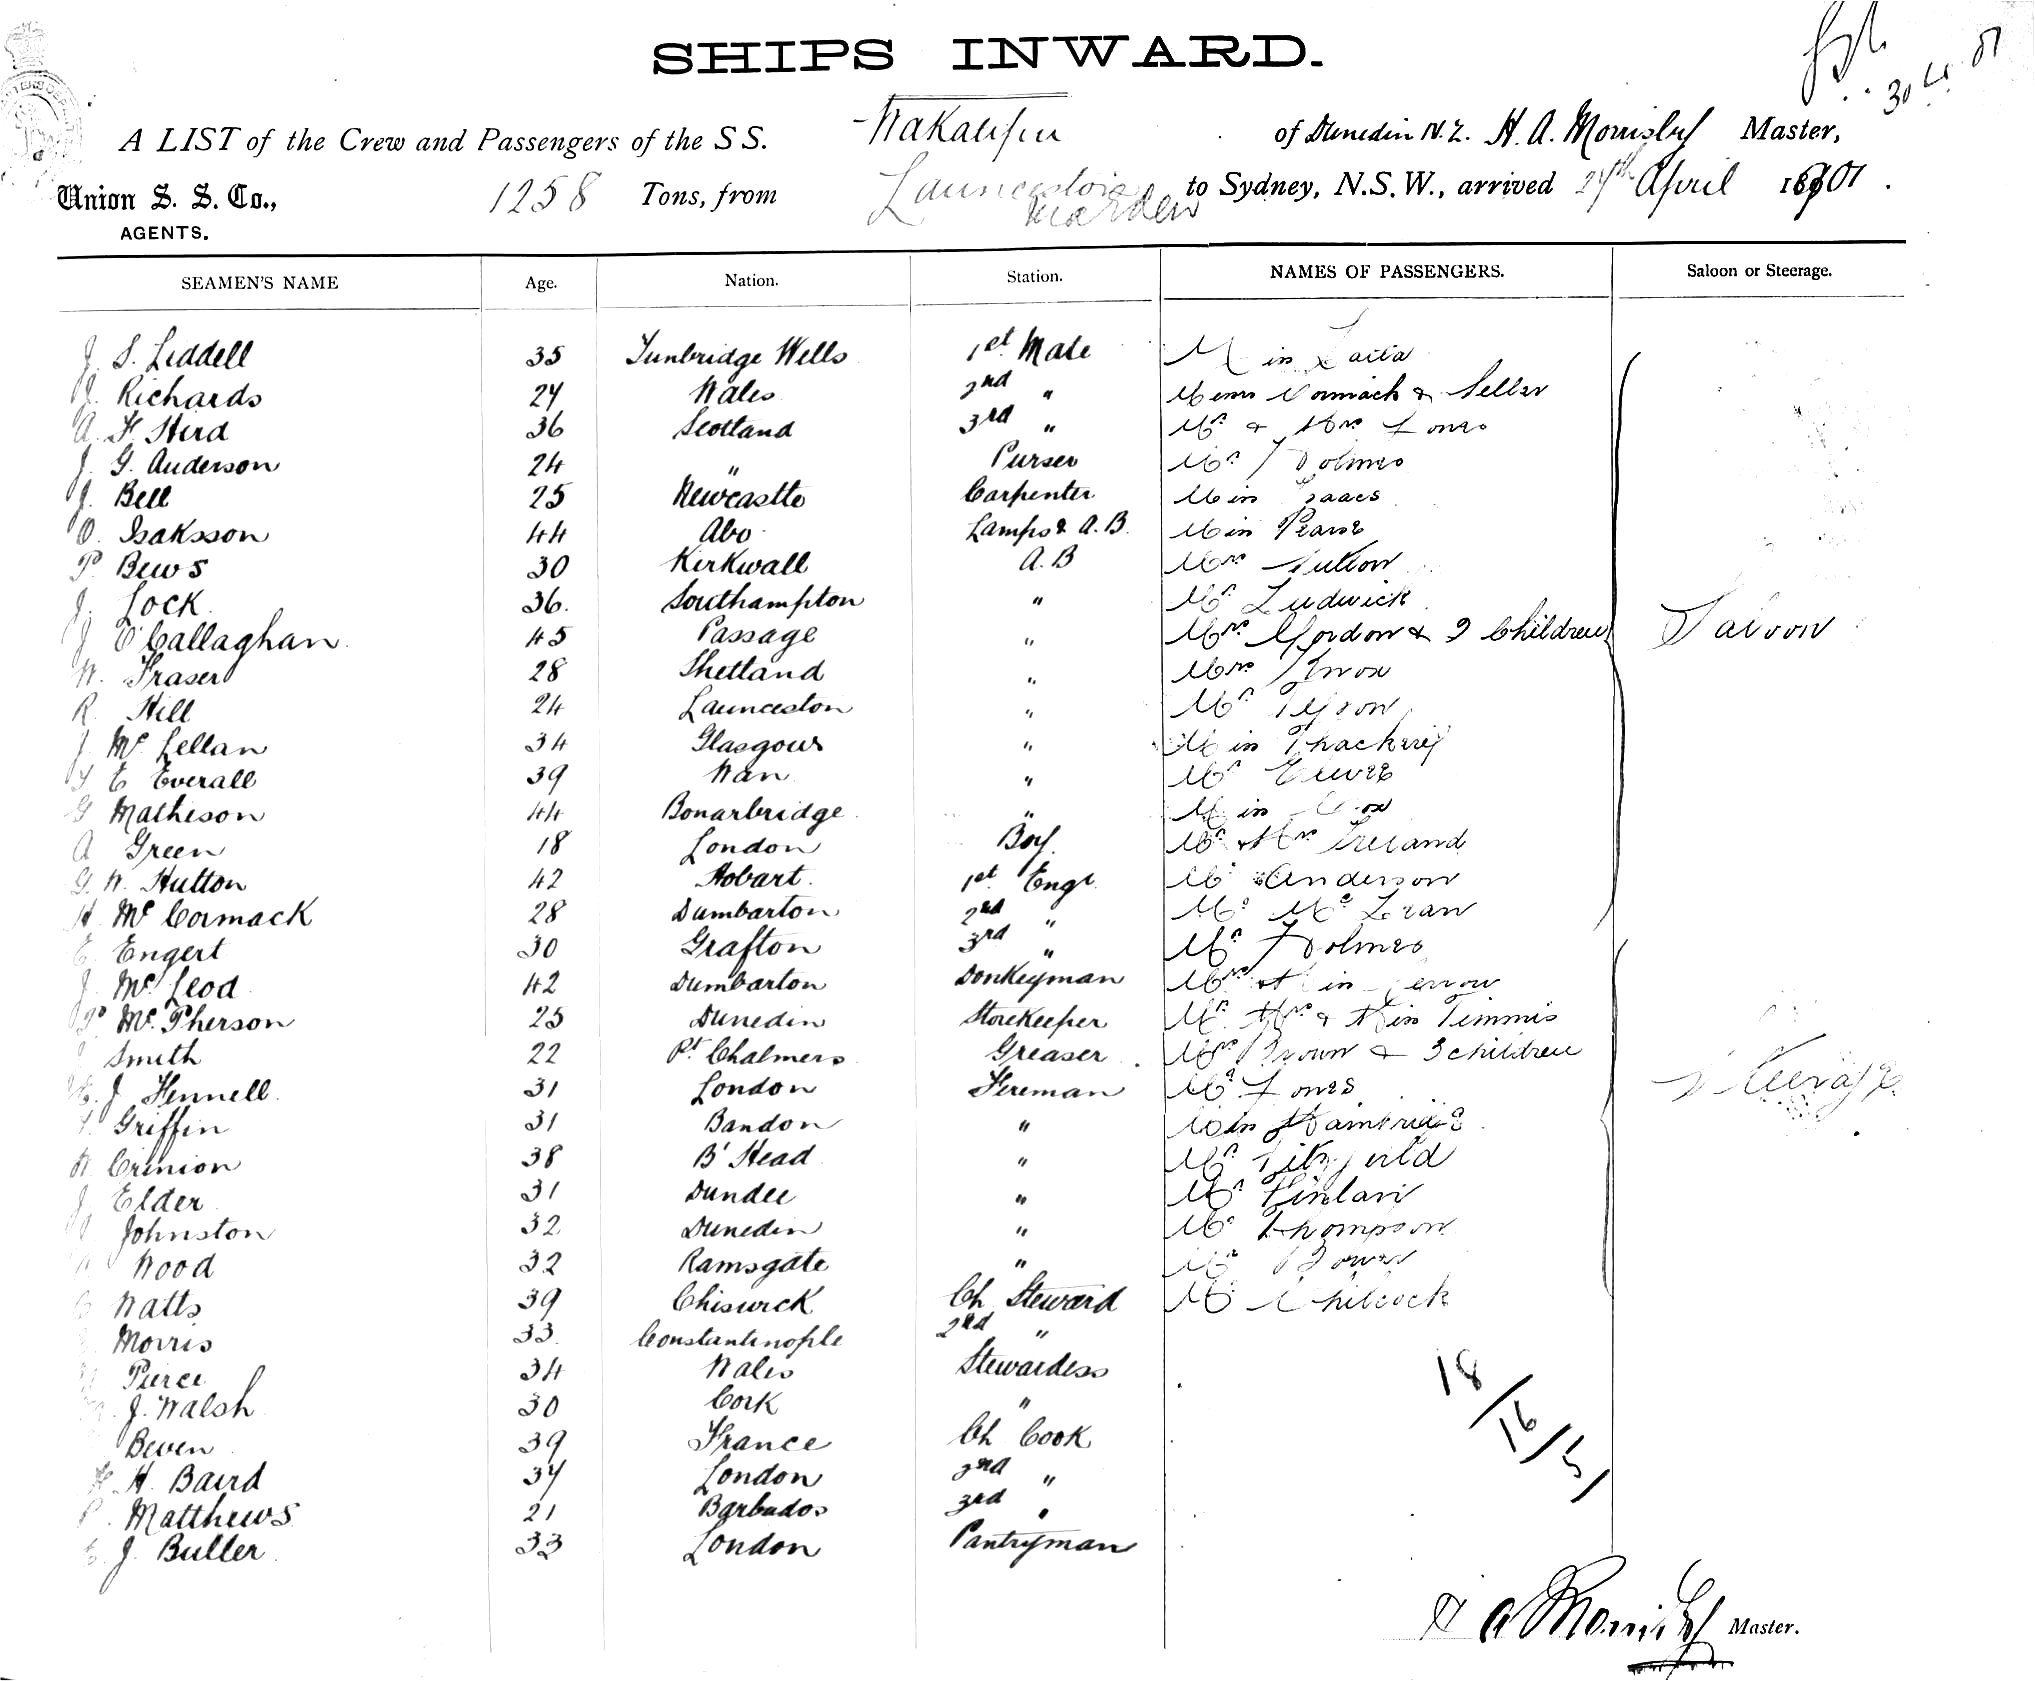 SHIPS INWARD.
30 4 01
A LIST of the Crew and Passengers of the S S. Wakatipu of Dunedin N.Z. H. A. Morrisby Master,
Union S. S. Co., 1258 Tons, from Launceston to Sydney, N.S.W., arrived April 1901.
AGENTS.
SEAMEN'S NAME Age. Nation. Station. NAMES OF PASSENGERS. Saloon or Steerage.
J. S. Liddell 35 Tunbridge Wells 1st Mate Miss
J. Richards 24 Wales 2nd " Messrs Cormack & Seller
A. F. Herd 36 Scotland 3rd " Mr & Mrs Jones
J. G. Anderson 24 " Purser Mr Holmes
J. Bell 25 Newcastle Carpenter Miss Isaacs
O. Isaksson 44 Abo Lamps & A.B. Miss Pearse
P. Bews 30 Kirkwall A.B Mrs Sutton
J. Lock 36. Southampton " Mr Ludwick
J O'Callaghan 45 Passage " Mrs Gordon & 2 Children Saloon
W. Fraser 28 Shetland " Mrs Knox
R. Hill 24 Launceston " Mr Tyson
J. McLellan 34 Glasgow " Miss Thackery
T E Everall 39 Wan " Mr
G Matheson 44 Bonarbridge " Miss Cox
A Green 18 London Boy Mr & Mrs Ireland
G. W. Hutton 42 Hobart. 1st Engr. Mr Anderson
H. McCormack 28 Dumbarton 2nd " Mr McLean
E Engert 30 Grafton 3rd " Mr Holmes
J. McLeod 42 Dumbarton Donkeyman Mrs & Miss
P McPherson 25 Dunedin Storekeeper Mr. Mrs & Miss Timmis
Smith 22 Pt Chalmers Greaser Mrs Brown & 3 children Steerage
J Fennell 31 London Fireman Mr Jones
Griffin 31 Bandon " Miss
W Crinion 38 B'Head " Mr Fitzgerald
J. Elder 31 Dundee " Mr
Johnston 32 Dunedin " Mr Thompson
Wood 32 Ramsgate " Mr
Watts 39 Chiswick Ch Steward Mr Chilcock
Morris 33 Constantinople 2nd "
Pierce 34 Wales Stewardess
J. Walsh 30 Cork "
Beven 39 France Ch Cook
H. Baird 34 London 2nd "
P. Matthews 21 Barbados 3rd "
J. Butler 33 London Pantryman
18/16/51
H A Morrisby Master.